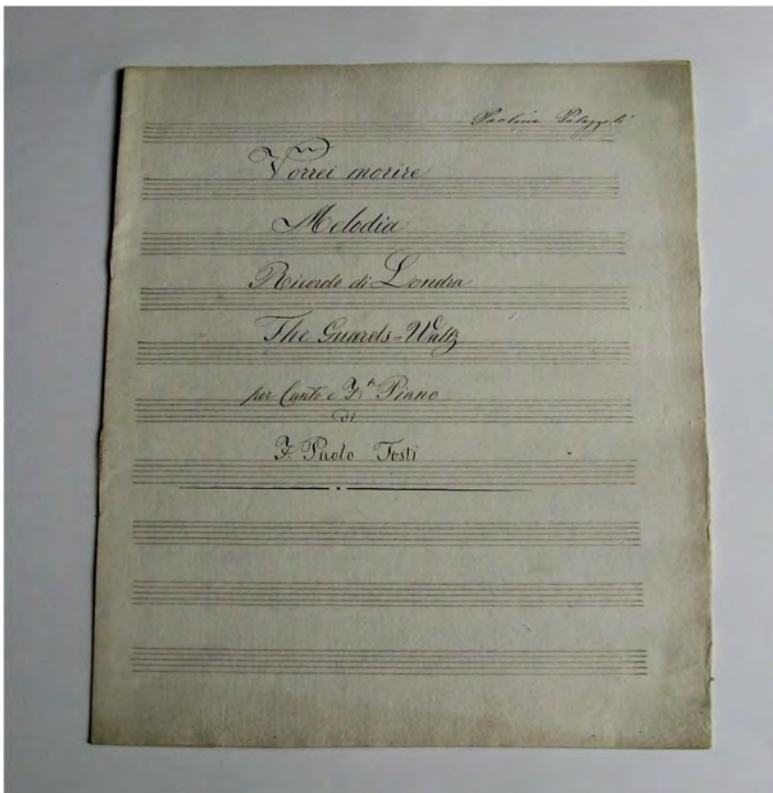 Paolina Palazzoli
Vorrei morire
Melodia
Ricordo di Londra
The Guards=Waltz
per Canto e Fte Piano
di
F. Paolo Tosti